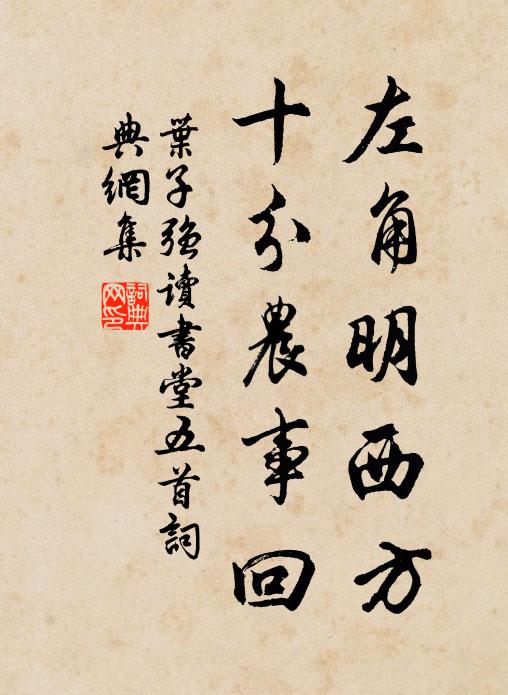 左角明西方
十分農事回
葉子強讀書堂五首詞
典網集
詞典
网印